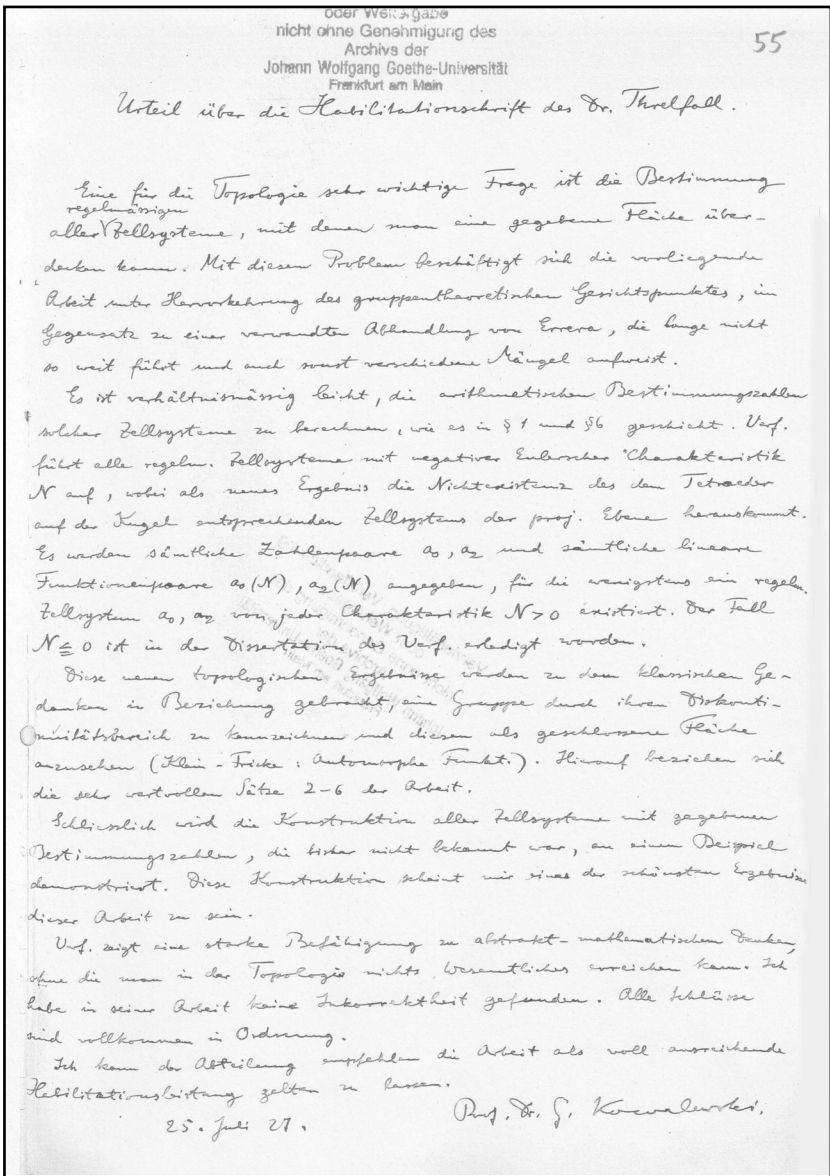 oder Weitergabe
nicht ohne Genehmigung des
Archivs der
Johann Wolfgang Goethe-Universität
Frankfurt am Main
55
Urteil über die Habilitationsschrift des Dr. Threlfall.
Eine für die Topologie sehr wichtige Frage ist die Bestimmung
regelmässigen
aller Zellsysteme, mit denen man eine gegebene Fläche über-
decken kann. Mit diesem Problem beschäftigt sich die vorliegende
Arbeit unter Hervorkehrung des gruppentheoretischen Gesichtspunktes, im
Gegensatz zu einer verwandten Abhandlung von Errera, die lange nicht
so weit führt und auch sonst verschiedene Mängel aufweist.
Es ist verhältnismässig leicht, die arithmetischen Bestimmungszahlen
solcher Zellsysteme zu berechnen, wie es in § 1 und § 6 geschicht. Verf.
führt alle regelm. Zellsysteme mit negativer Eulerscher Charakteristik
N auf, wobei als neues Ergebnis die Nichtexistenz des dem Tetraeder
auf der Kugel entsprechenden Zellsystems der proj. Ebene herauskommt.
Es werden sämtliche Zahlenpaare a₀, a₂ und sämtliche lineare
Funktionenpaare a₀(N), a₂(N) angegeben, für die wenigstens ein regelm.
Zellsystem a₀, a₂ von jeder Charakteristik N>0 existiert. Der Fall
N ≦ 0 ist in der Dissertation des Verf. erledigt worden.
Diese neuen topologischen Ergebnisse werden zu dem klassischen Ge-
danken in Beziehung gebracht, eine Gruppe durch ihren Diskonti-
nuitätsbereich zu kennzeichnen und diesen als geschlossene Fläche
anzusehen (Klein-Fricke: Automorphe Funkt.). Hierauf beziehen sich
die sehr wertvollen Sätze 2-6 der Arbeit.
Schliesslich wird die Konstruktion aller Zellsysteme mit gegebenen
Bestimmungszahlen, die bisher nicht bekannt war, an einem Beispiel
demonstriert. Diese Konstruktion scheint mir eines der schönsten Ergebnisse
dieser Arbeit zu sein.
Verf. zeigt eine starke Befähigung zu abstrakt-mathematischem Denken,
ohne die man in der Topologie nichts Wesentliches erreichen kann. Ich
habe in seiner Arbeit keine Inkorrektheit gefunden. Alle Schlüsse
sind vollkommen in Ordnung.
Ich kann der Abteilung empfehlen die Arbeit als voll ausreichende
Habilitationsleistung gelten zu lassen.
25. Juli 27.
Prof. Dr. G. Kowalewski.